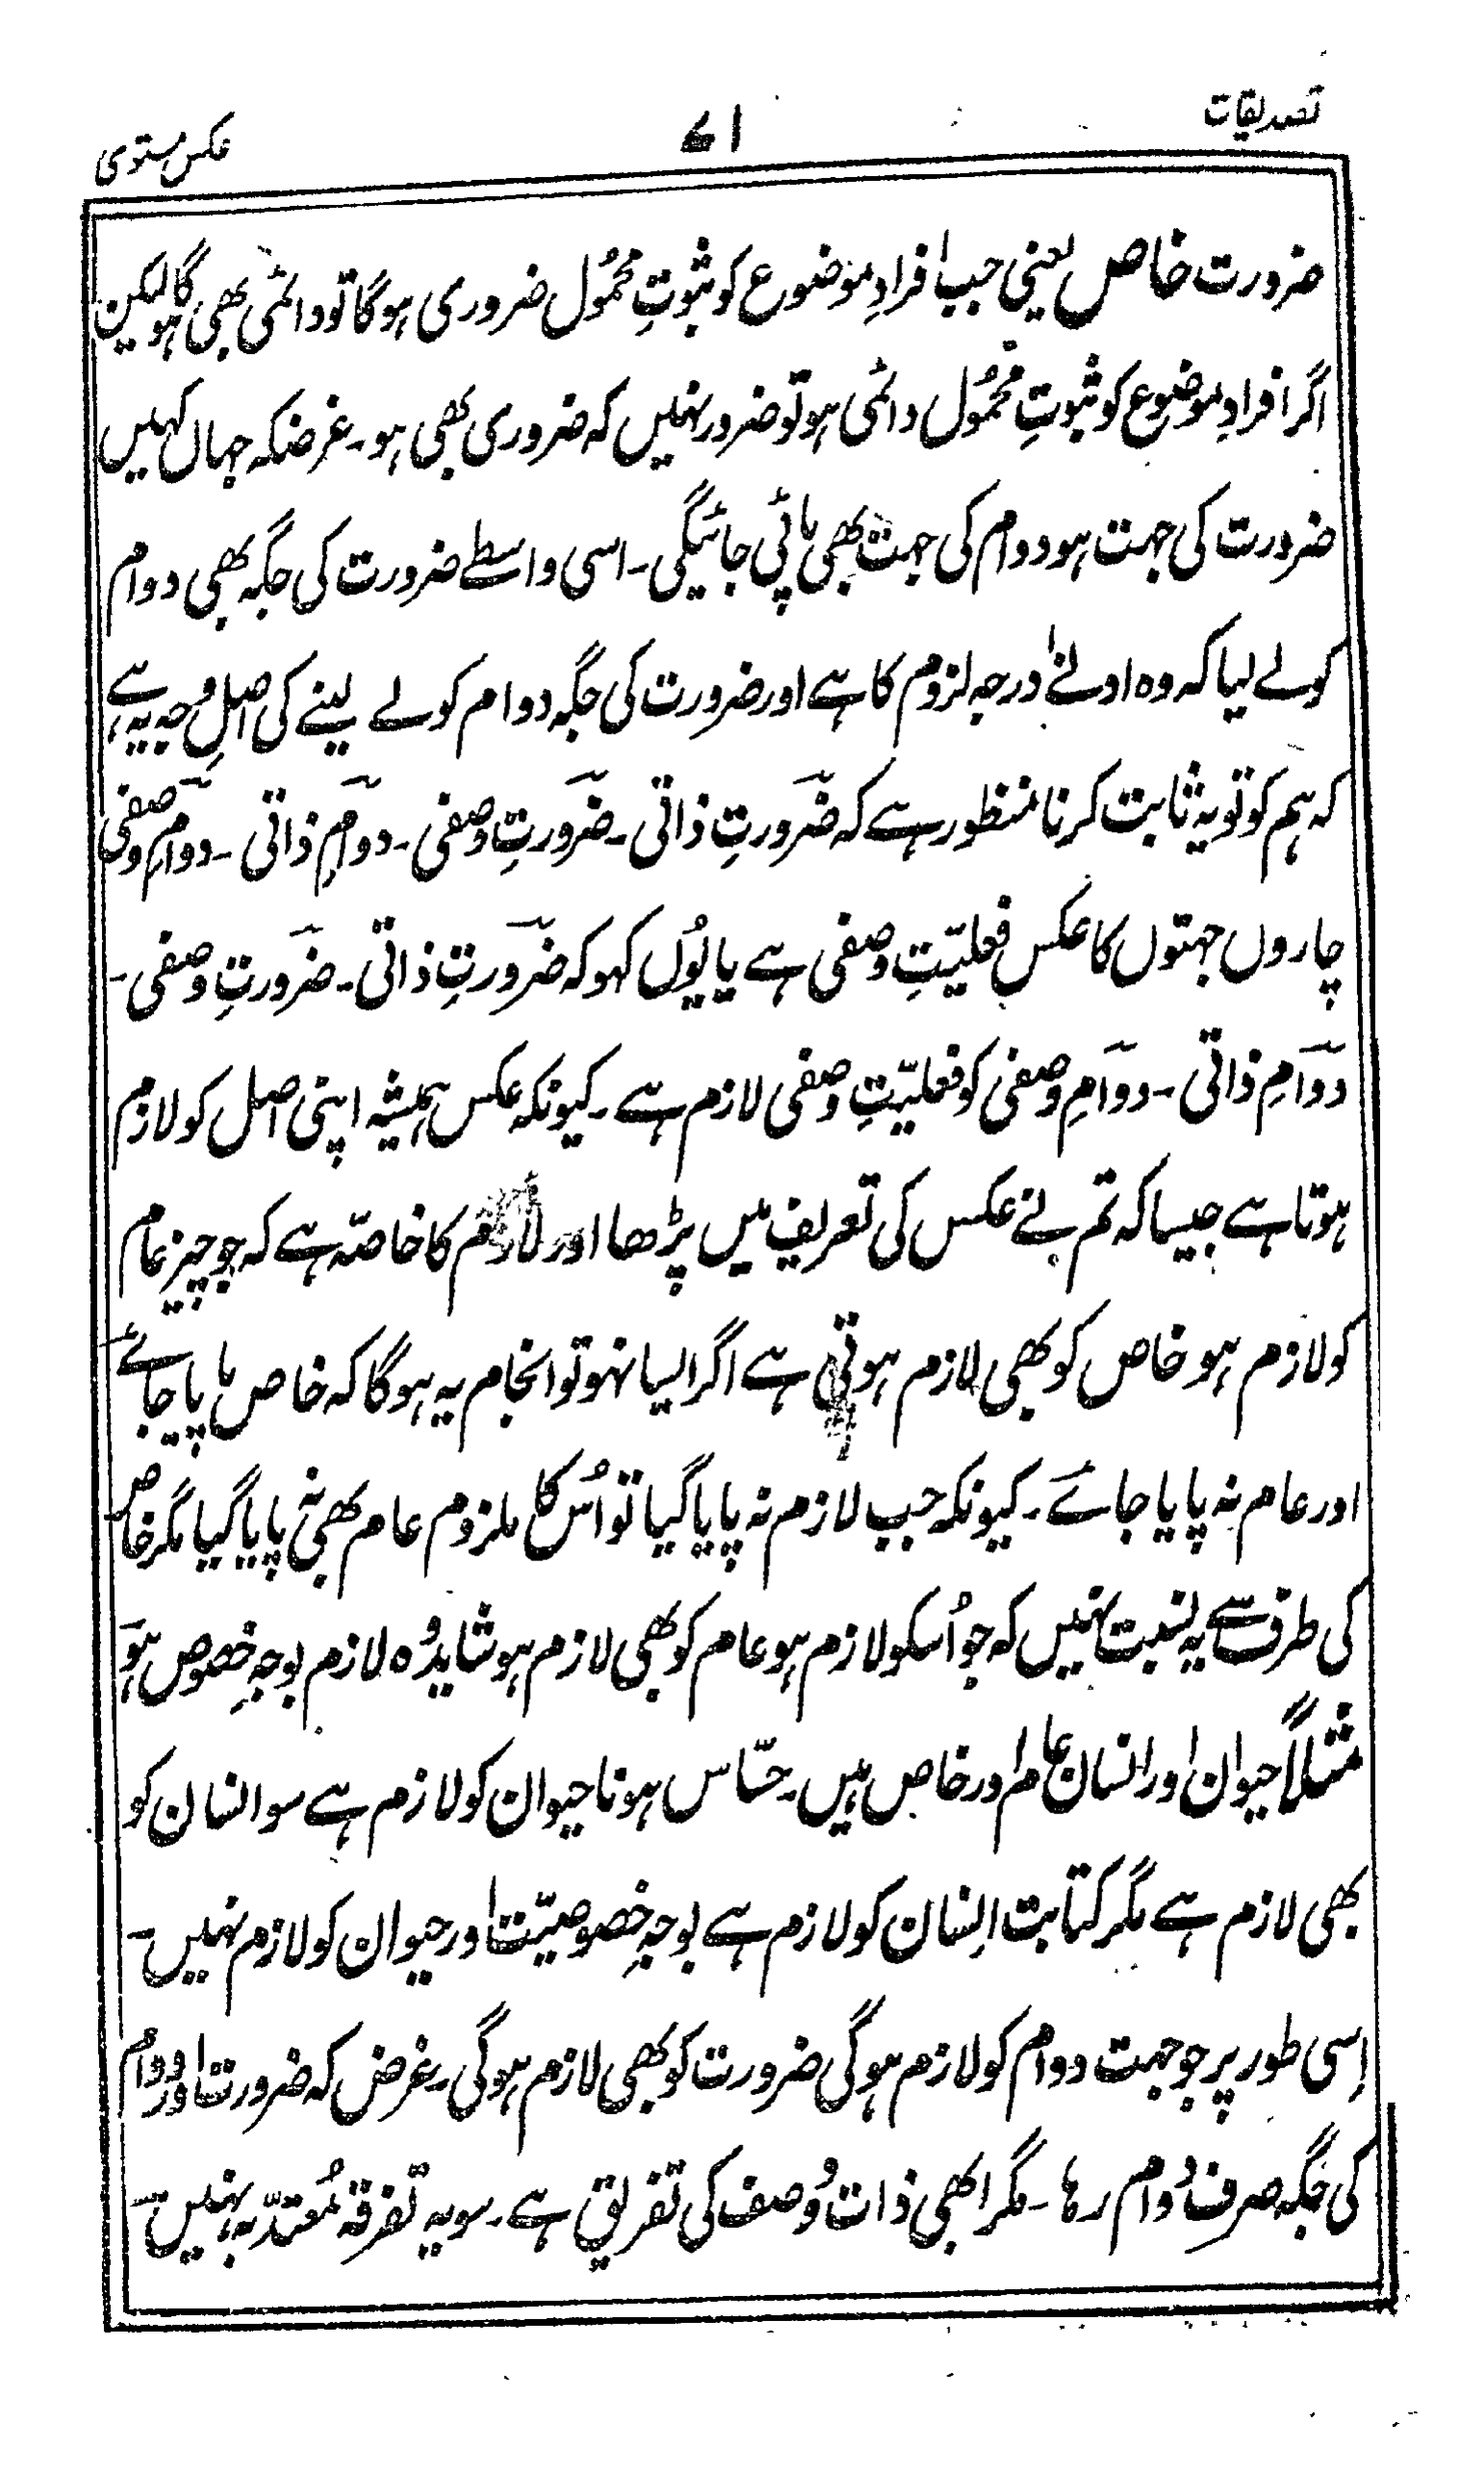 تصدیقات
۷۱
عکس مستوی
ضرورت خاص یعنی جب افرادِ موضوع کو ثبوتِ محمُول ضروری ہوگا تو دائمی بھی ہوگا لیکن
اگر افرادِ موضوع کو ثبوتِ محمُول دائمی ہو تو ضرور نہیں کہ ضروری بھی ہو۔ غرضکہ جہاں کہیں
ضرورت کی جہت ہو دوام کی جہت بھی پائی جائیگی۔ اسی واسطے ضرورت کی جگہ بھی دوام
کو لے لیا کہ وہ ادنےٰ درجہ لزوم کا ہے اور ضرورت کی جگہ دوام کو لے لینے کی اصلِ وجہ یہ ہے
کہ ہم کو تو یہ ثابت کرنا منظور ہے کہ ضرورتِ ذاتی۔ ضرورتِ وصفی۔ دوامِ ذاتی۔ دوامِ وصفی
چاروں جہتوں کا عکس فعلیّتِ وصفی ہے یا یُوں کہو کہ ضرورتِ ذاتی۔ ضرورتِ وصفی۔
دوامِ ذاتی۔ دوامِ وصفی کو فعلیّتِ وصفی لازم ہے۔ کیونکہ عکس ہمیشہ اپنی اصل کو لازم
ہوتا ہے جیسا کہ تم نے عکس کی تعریف میں پڑھا اور لازم کا خاصّہ ہے کہ جو چیز عام
کو لازم ہو خاص کو بھی لازم ہوتی ہے اگر ایسا نہو تو انجام یہ ہوگا کہ خاص پایا جائے
اور عام نہ پایا جائے۔ کیونکہ جب لازم نہ پایا گیا تو اُس کا ملزوم عام بھی نہ پایا گیا مگر خاص
کی طرف سے یہ نسبت نہیں کہ جو اُسکو لازم ہو عام کو بھی لازم ہو شاید وُہ لازم بوجہِ خصوص ہو
مثلاً حیوان اور انسان عام اور خاص ہیں۔ حسّاس ہونا حیوان کو لازم ہے سو انسان کو
بھی لازم ہے مگر کتابت اِنسان کو لازم ہے بوجہِ خصوصیّت اور حیوان کو لازم نہیں۔
اِسی طور پر جو جہت دوام کو لازم ہوگی ضرورت کو بھی لازم ہوگی۔ غرض کہ ضرورت اور دوام
کی جگہ صرف دوام رہا۔ مگر ابھی ذات وُصف کی تفریق ہے۔ سو یہ تفرقہ مُعتدّبہ نہیں۔